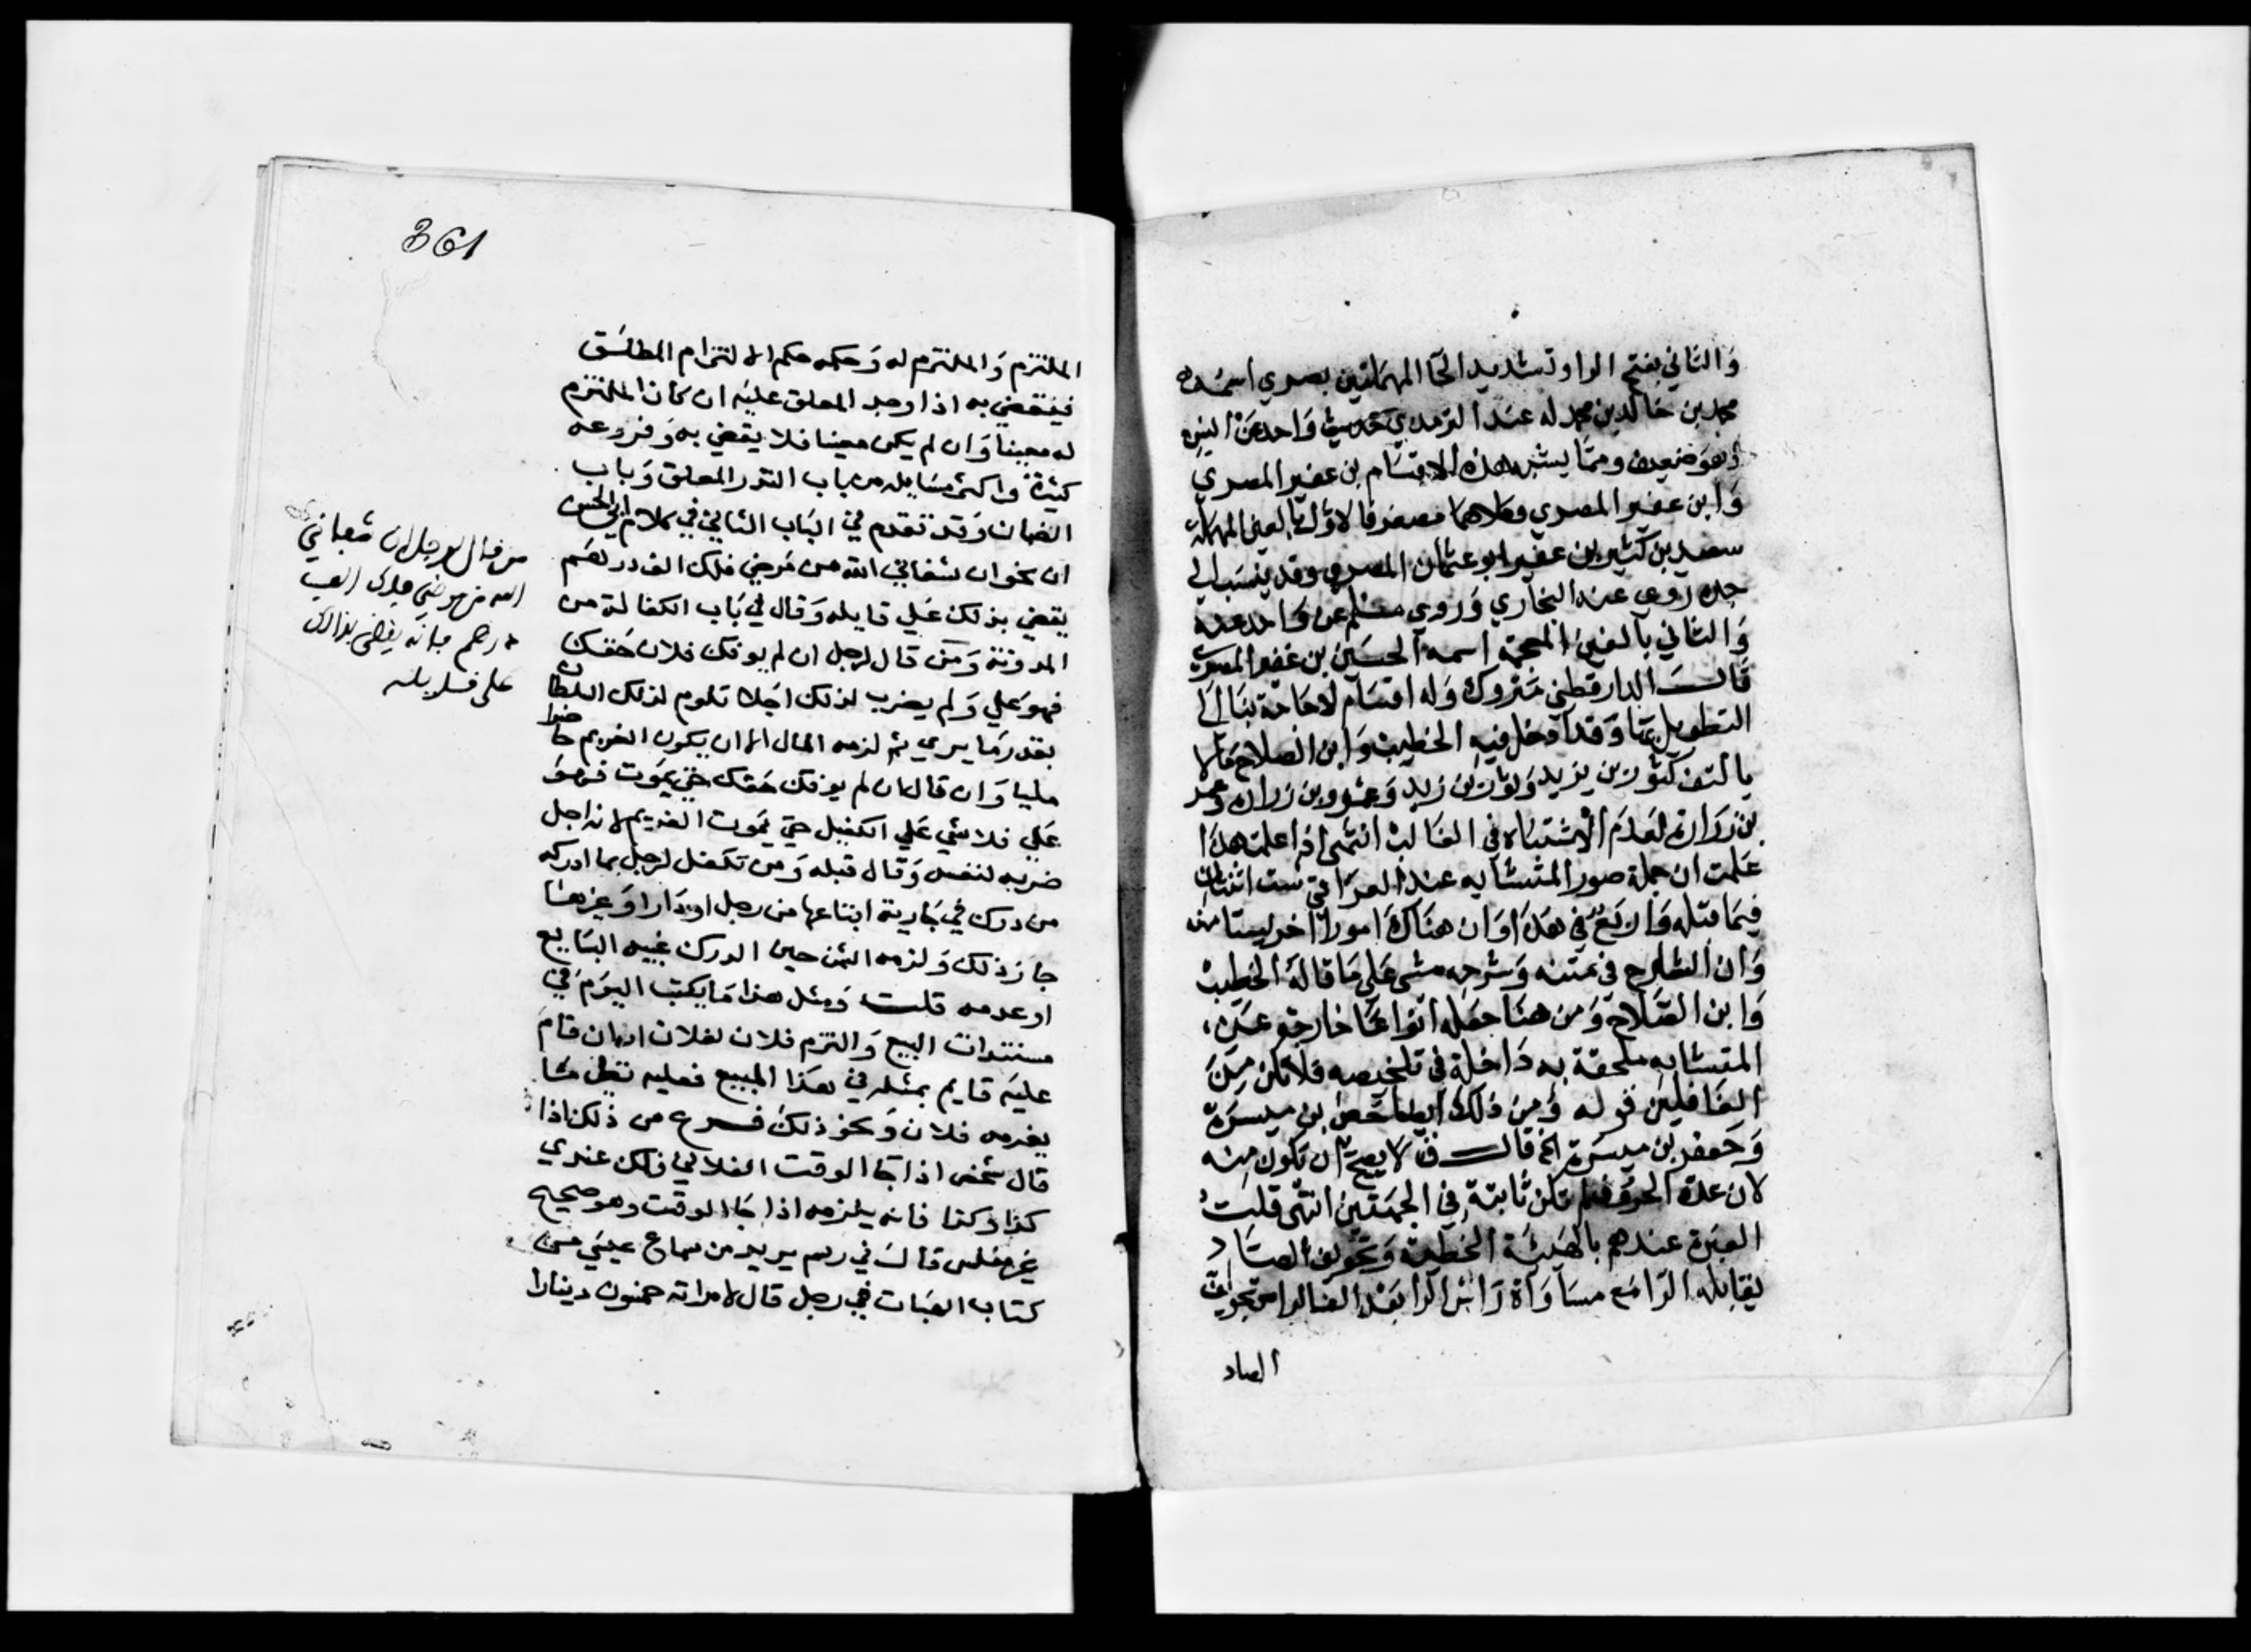 والثاني بفتح الراو تشديد الحا المهملتين بصري اسمه
محمد بن خالد بن محمد له عند الترمذي حديث واحد عن انس
وهو ضعيف ومما يشبه هذه الاقسام بن عفير المصري
وابن عفير المصري وكلاهما مصغر فالاول بالعين المهملة
سعيد بن كثير بن عفير ابو عثمان المصري وقد ينسب الي
جده روي عنه البخاري وروي مسلم عن واحد عنه
والثاني بالغين المعجمة اسمه الحسين بن غفير المصري
قال الدارقطني متروك وله اقسام لا حاجة بنا الي
التطويل بها وقد ادخل فيه الخطيب وابن الصلاح
كثور بن يزيد وثور بن زيد وعمرو بن زرارة وعمر
بن زرارة لعدم الاشتباه في الغالب انتهى اذا علمت هذا
علمت ان جملة صور المتشابه عند العراقي ست اثنتان
فيما قبله والاربع في هذا وان هناك امورا اخر ليستا منه
وان الشارح في متنه وشرحه مشى علي ما قاله الخطيب
وابن الصلاح ومن هنا جعله انواعا خارجة عن
المتشابه ملحقة به داخلة في تلخيصه فلا تكن من
الغافلين قوله ومن ذلك ايضا حفص بن ميسرة
وجعفر بن ميسرة الخ قال ق لا يصح ان تكون منه
لان عدة الحروف لم تكن ثابتة في الجهتين انتهى قلت
العبرة عندهم بالهيئة الخطية وتجويف الصاد
يقابله الرا مع مساواة راس الرا بعد الفا لراس تجويف
الصاد
361
الملتزم والملتزم له وحكمه حكم الالتزام المطلق
فيقضي به اذا وجد المعلق عليه ان كان الملتزم
له معينا وان لم يكن معينا فلا يقضي به وفروعه
كثيرة واكثر مسايله من باب النذر المعلق وباب
الضمان وقد تقدم في الباب الثاني في كلام ابي الحسن
ان نحو ان شفاني الله من مرضي فلك الف درهم
يقضي بذلك علي قايله وقال في باب الكفالة من
المدونة ومن قال لرجل ان لم يوفك فلان حقك
فهو علي ولم يضرب لذلك اجلا تلوم لذلك السلطان
بقدر ما يري ثم لزمه المال الا ان يكون الغريم حاضرا
مليا وان قال ان لم يوفك حقك حتي يموت فهو
علي فلا شي علي الكفيل حتي يموت الغريم لانه اجل
ضربه لنفسه وقال قبله ومن تكفل لرجل بما ادركه
من درك في جارية ابتاعها من رجل او دارا وغيرها
جاز ذلك ولزمه الثمن حين الدرك غيبه البايع
او عدمه قلت ومثل هذا ما يكتب اليوم في
مستندات البيع والتزم فلان لفلان انه ان قام
عليه قايم بمثله في هذا المبيع فعليه نظير ما
يغرمه فلان ونحو ذلك فرع من ذلك اذا
قال شخص اذا جا الوقت الفلاني فلك عندي
كذا وكذا فانه يلزمه اذا جا الوقت وهو صحيح
غير مفلس قال في رسم يريد من سماع عيسي من
كتاب الهبات في رجل قال لامراته خمسون دينارا
من قال لرجل ان شفاني
الله من مرضي فلك الف
درهم فانه يقضى بذالك
على قايله